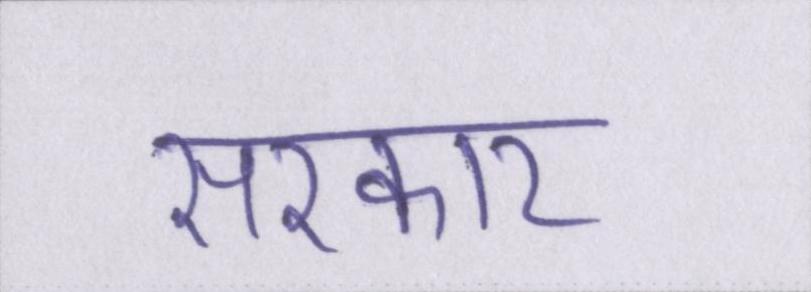 सरकार